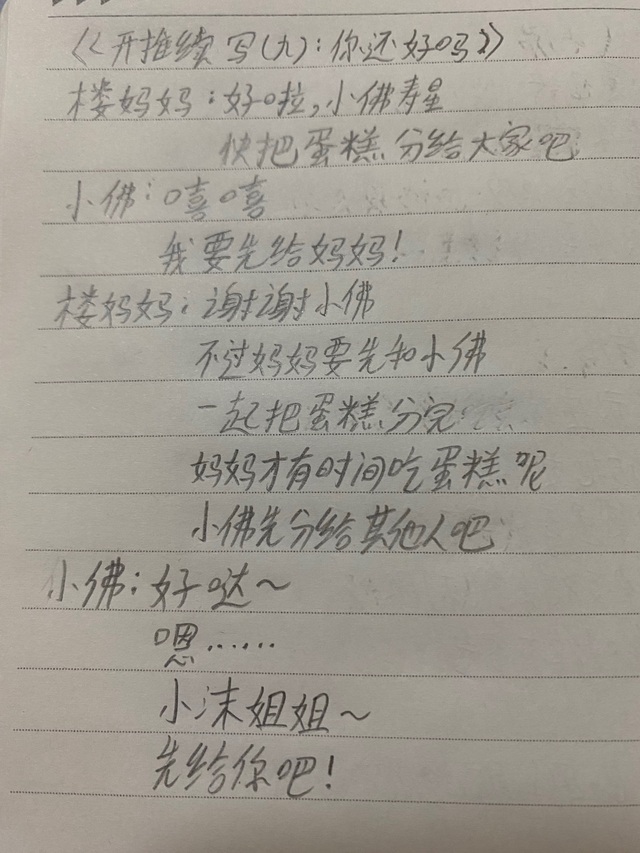 《〈开推续写(九):你还好吗?》
楼妈妈:好啦,小佛寿星
快把蛋糕分给大家吧
小佛:嘻嘻
我要先给妈妈!
楼妈妈:谢谢小佛
不过妈妈要先和小佛
一起把蛋糕分完
妈妈才有时间吃蛋糕呢
小佛先分给其他人吧
小佛:好哒~
嗯……
小沫姐姐~
先给你吧!